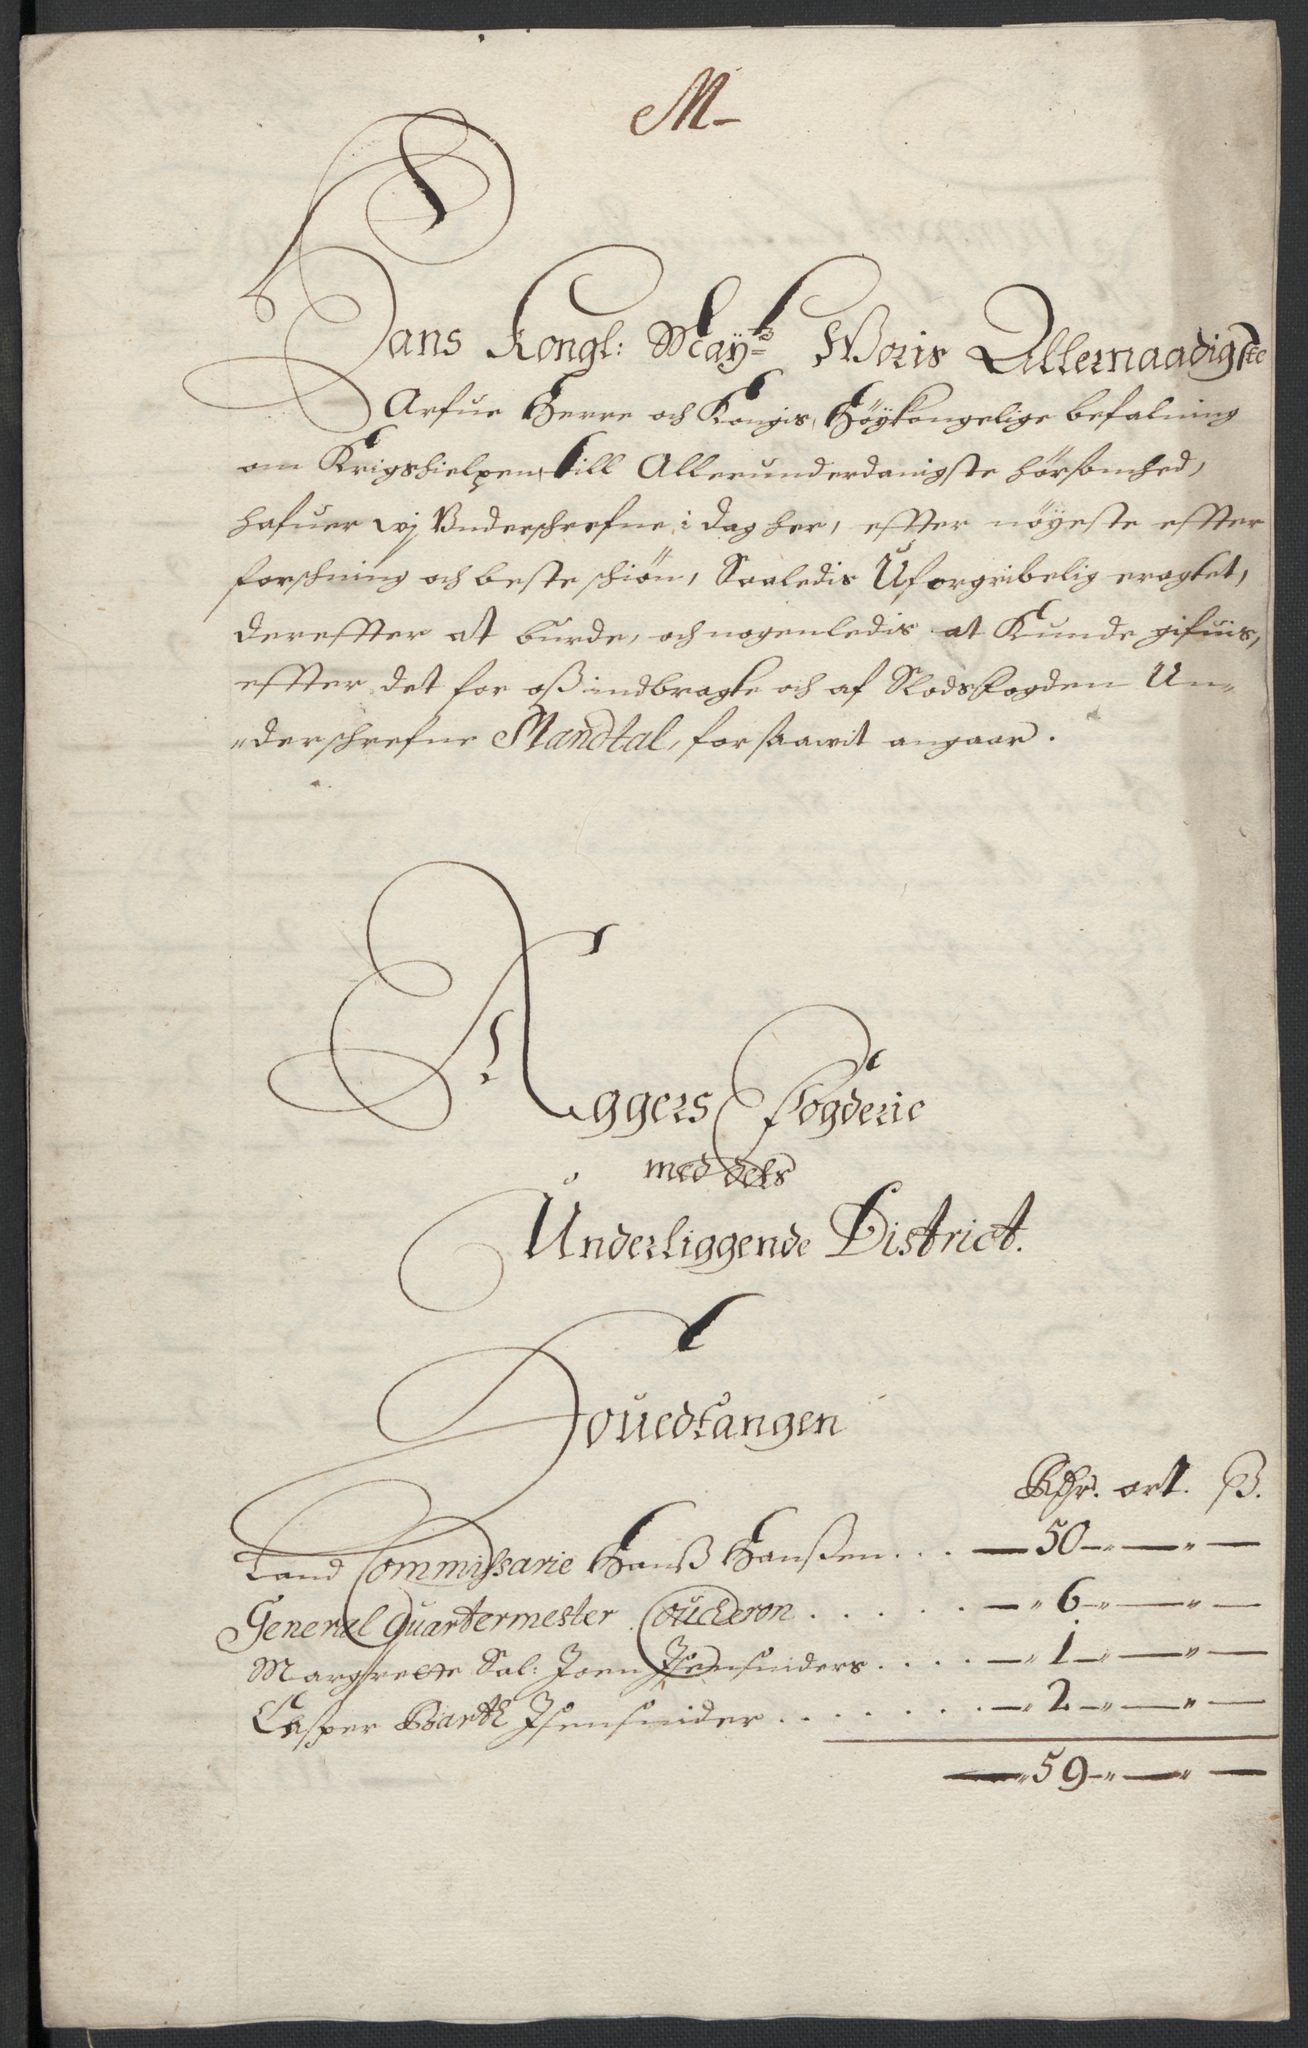 M-
Hans Kongl: Maÿts Woris Allernaadigste
Arfue Herre och Kongis, Höykongelige befalning
om Krigshielpen, till Allerunderdanigste hörsomhed,
hafuer wj Underschrefne i dag her, effter nöyeste effter
forschning och beste schiön, Saaledis Uforgribelig eragtet,
dereffter at burde, och nogenledis at Kunde gifuis,
effter det for oß indbragte och af Slodsfogden Un„
„derschrefne Mandtal, forsaawit angaar.
Aggers Fogderie
med dets
Underliggende District.
Houedtangen
Rdr. ort. ß.
Land Commissarie Hanß Hanßen . . . — 50 — „ — „ —
General Quartermester Coucheron . . . . . — „ 6 — „ — „ —
Margrette Sal: Joen Isensniders . . . . — „ 1 — „ — „ —
Casper Barth Isensnider . . . . . . . — „ 2 — „ — „ —
— „ 59 — „ — „ —